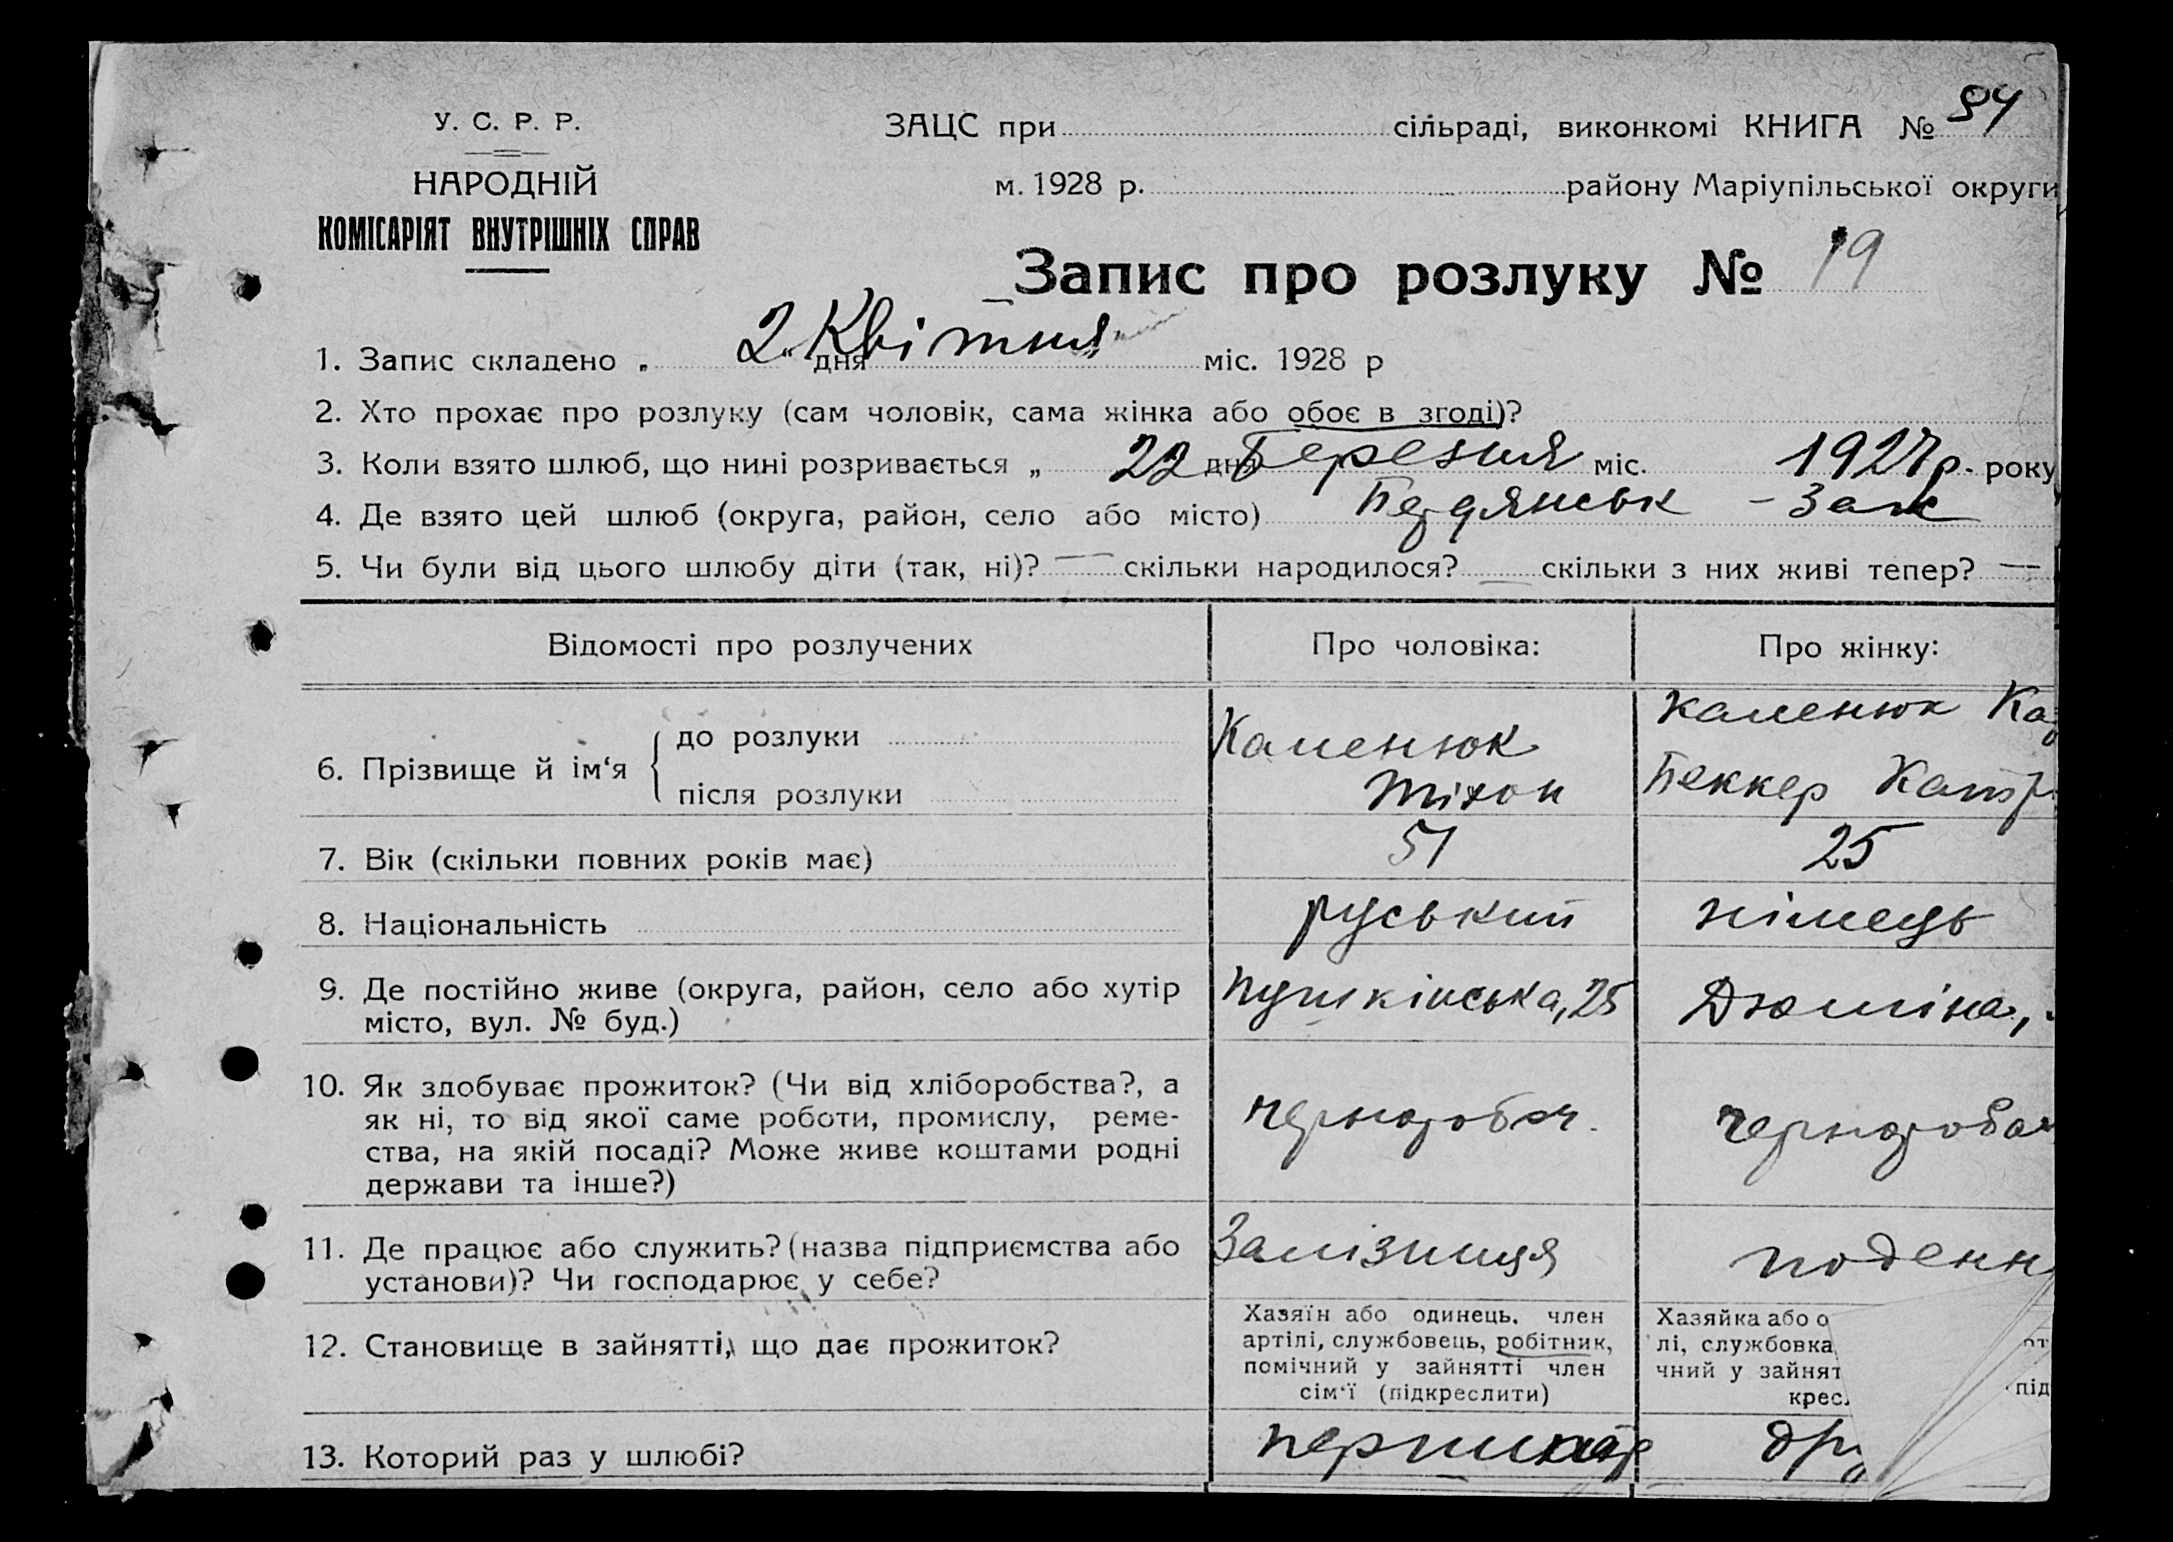 У. С. Р. Р.
НАРОДНІЙ
КОМІСАРІЯТ ВНУТРІШНІХ СПРАВ
ЗАЦС при сільраді, виконкомі КНИГА № 84
м. 1928 р. району Маріупільської округи
Запис про розлуку № 19
1. Запис складено „ 2 " дня Квітня міс. 1928 р
2. Хто прохає про розлуку (сам чоловік, сама жінка або обоє в згоді)?
3. Коли взято шлюб, що нині розривається „ 22 дня Березня міс. 1927 р. року
4. Де взято цей шлюб (округа, район, село або місто) Бердянськ - Заг
5. Чи були від цього шлюбу діти (так, ні)? — скільки народилося? — скільки з них живі тепер? —
Відомості про розлучених Про чоловіка: Про жінку:
6. Прізвище й ім‘я
до розлуки
після розлуки
Каменюк
Тіхон
Каменюк Ка
Беккер Катр
7. Вік (скільки повних років має) 51 25
8. Національність руський німець
9. Де постійно живе (округа, район, село або хутір
місто, вул. № буд.)
Пушкінська, 25 Дюміна,
10. Як здобуває прожиток? (Чи від хліборобства?, а
як ні, то від якої саме роботи, промислу, реме-
ства, на якій посаді? Може живе коштами родні
держави та інше?)
чернороб
11. Де працює або служить? (назва підприємства або
установи)? Чи господарює у себе?
Залізниця поденн
12. Становище в зайнятті, що дає прожиток?
Хазяїн або одинець. член
артілі, службовець, робітник,
помічний у зайнятті член
сім‘ї (підкреслити)
Хазяйка або о
лі, службовка
чний у зайнят
крес
під
13. Которий раз у шлюбі? др